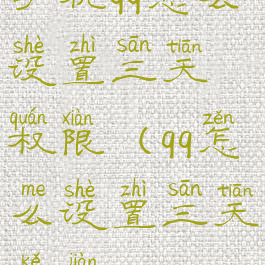 shè zhì sān tiān
设置三天
quán xiàn zěn
权限（qq怎
me shè zhì sān tiān
么设置三天
kě jiàn